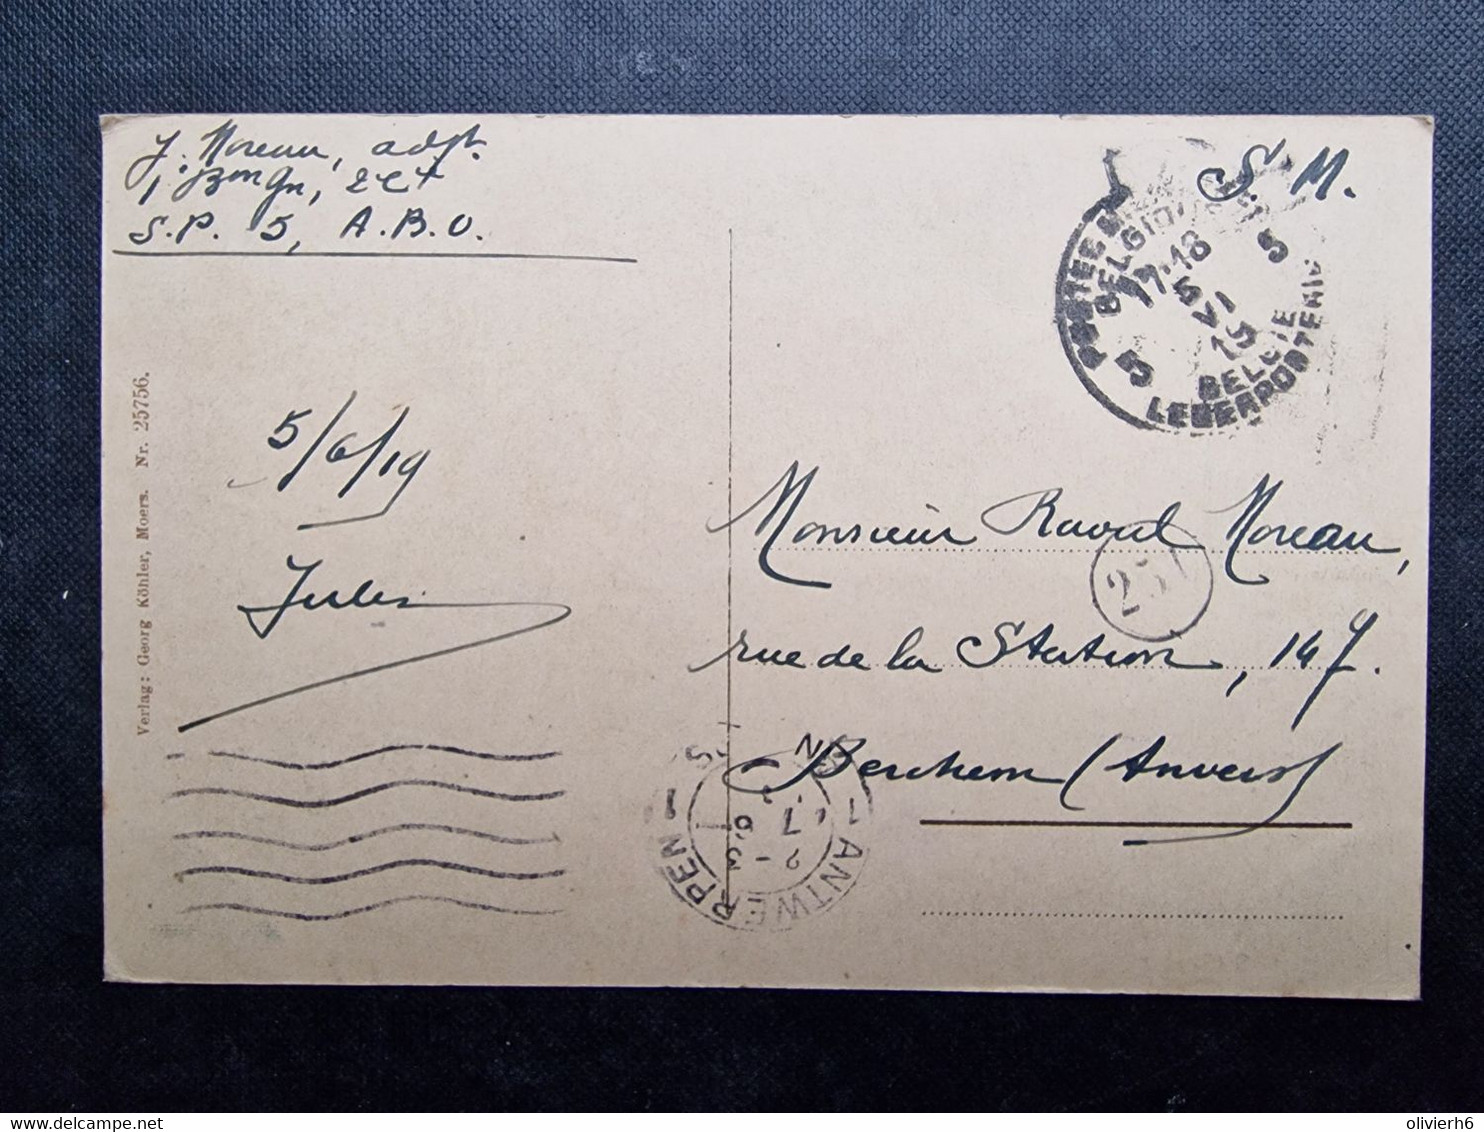 J. Moreau, adjt.
1 Bon Gn, 2 Ct
S.P. 5, A.B.O.
S. M.
POSTES
BELGIQUE
17-18
5 VI
19
5 5
BELGIE
LEGERPOSTERIJ
Verlag: Georg Köhler, Moers. Nr. 25756.
5/6/19
Jules
Monsieur Raoul Moreau,
rue de la Station, 147.
Berchem (Anvers)
1 ANTWERPEN 1
olivierh6